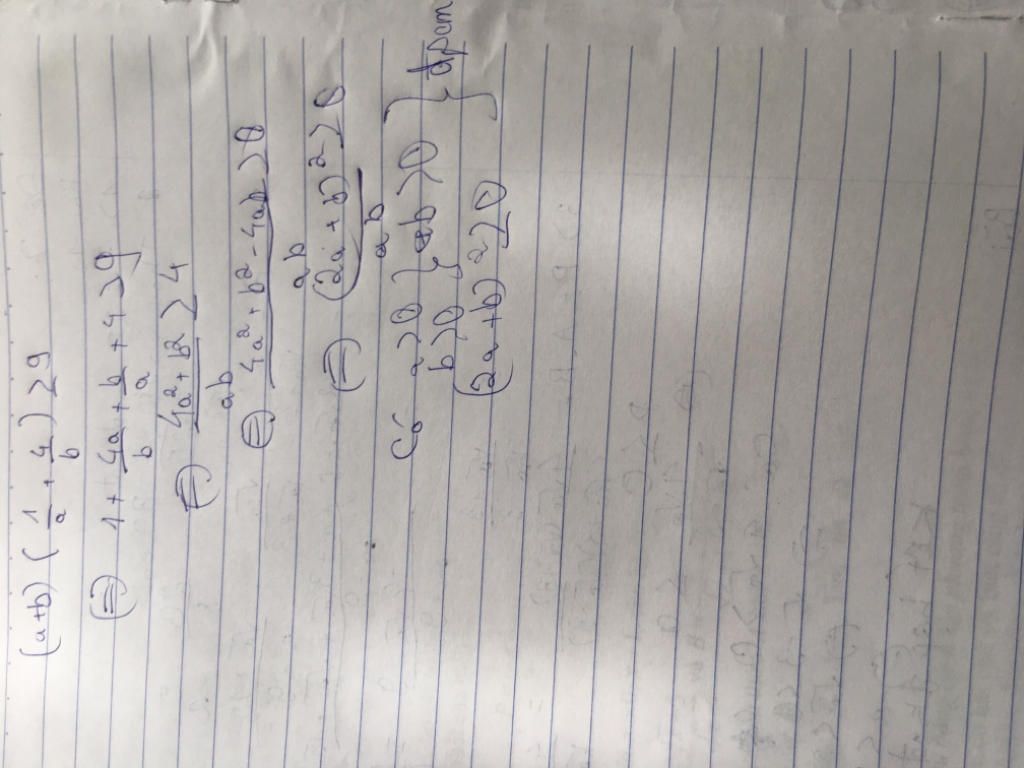 (a+b) (1/a + 4/b) ≥ 9
(=) 1 + 4a/b + b/a + 4 ≥ 9
(=) (4a² + b²)/ab ≥ 4
(=) (4a² + b² - 4ab)/ab ≥ 0
(=) (2a + b)²/ab ≥ 0
Có a>0 } ab>0 } đpcm
b>0
(2a+b)² ≥ 0